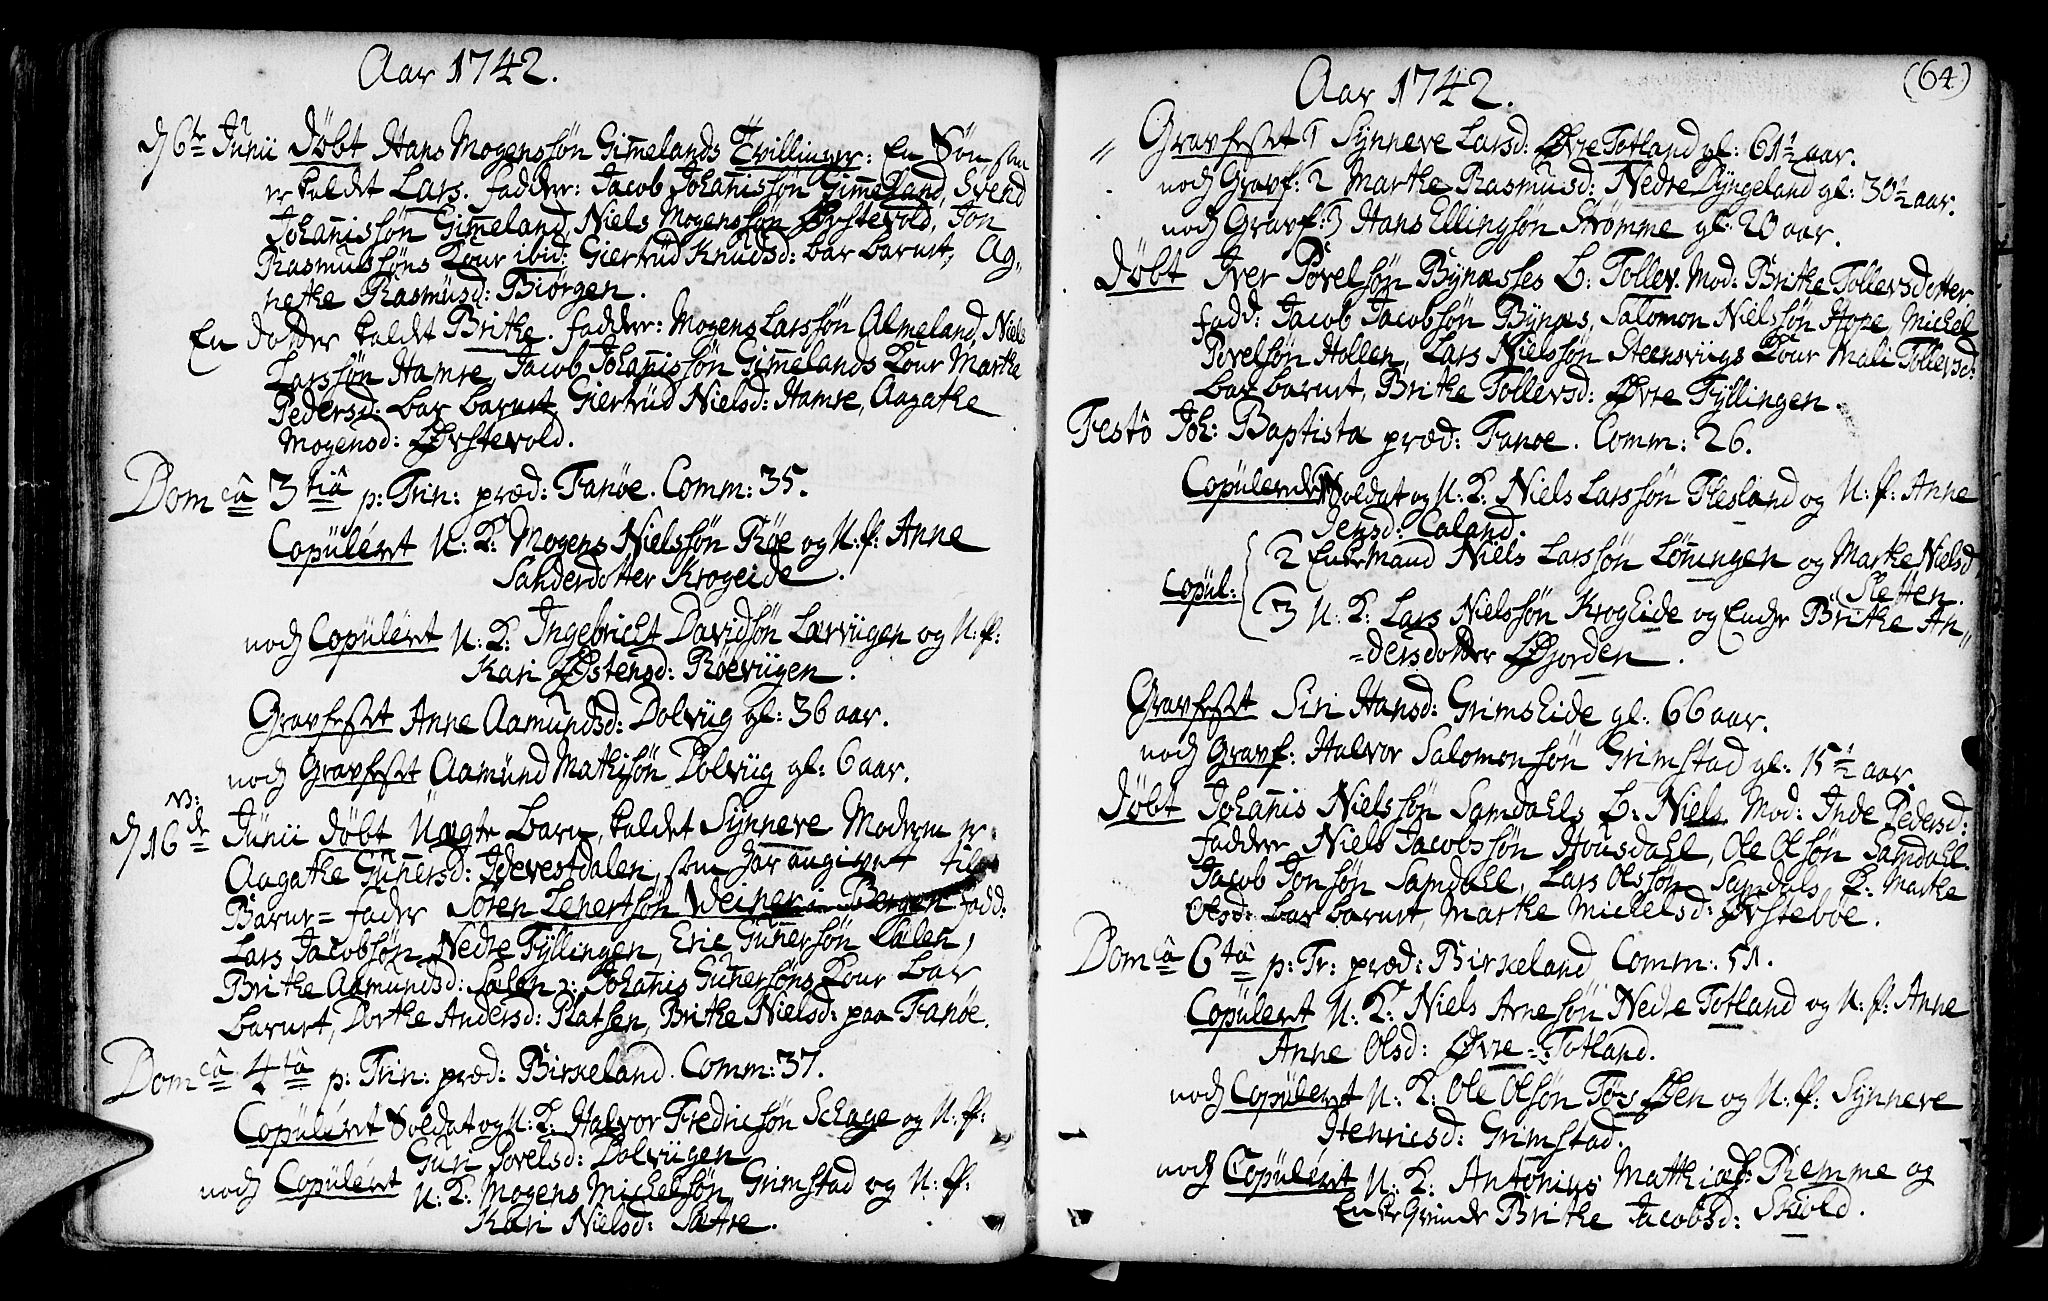 Aar 1742.
d 6te Junii Döbt Hans Mogenssön Gim̅elands Tvillinger: En Sön som
er kaldet Lars. fadder: Jacob Johan̅issön Gim̅eland, Svend
Johan̅issön Gim̅eland, Niels Mogenssön Ørstevold, Jon
Rasmussöns Kone ibid: Giertrüd Knudsd: bar barnet, Ag-
nethe Rasmüsd: Biörgen.
En dotter kaldet Brithe. fadder: Mogens Larssön Almeland, Niels
Larssön Hamre, Jacob Johan̅issön Gim̅elands Kone Marthe
Pedersd: bar barnet, Giertrüd Nielsd: Hamre, Aagathe
Mogensd: Ørstevold.
Dom câ 3tiâ p: Trin: præd: Fanöe. Comm: 35.
Copülert U: K: Mogens Nielssön Röe og U: P: Anne
Sanderdotter Krogeide.
noch Copülert U: K: Ingebricht Davidsön Lervügen og U: P:
Kari Østensd: Röevügen.
Gravfestet Anne Aamundsd: Dolvüg gl: 36 aar.
noch Gravfestet Aamünd Mathisön Dolvüg gl: 6 aar.
NB:
d 16de Junii döbt Uægte barn, kaldet Synneve Moderen er
Aagathe Gün̅ersd: Idevestdalen, som har angivet til
Barne= fader Sören Lenertsön Weiner i Bergen fadd:
Lars Jacobsön, Nedre Fyllingen, Eric Gün̅ersön Sælen,
Brithe Aamundsd: Sælen ɔ: Johan̅is Gun̅ersöns Kone bar
barnet, Dorthe Andersd: Ratsen, Brithe Nielsd: paa Fanöe.
Dom câ 4tâ p: Trin: præd: Birkeland. Comm: 37.
Copülert Soldat og U: K: Halvor Fredricsön Schage og U: P:
Guri Povelsd: Dolvügen
noch Copülert U: K: Mogens Michelsön Grimstad og U: P:
Kari Nielsd: Sætre.
Aar 1742.
(64)
Gravfestet 1 Synneve Larsd: Øvre Totland gl: 61½ aar.
noch Gravf: 2 Marthe Rasmusd: Nedre Dyngeland gl: 30½ aar.
noch Gravf: 3 Hans Ellingsön Strømme gl: 20 aar.
Döbt Iver Povelsön Bynæsses b: Tollev. Mod: Brithe Tollevsdotter
fadd: Jacob Jacobsön Bynæs, Salomon Nielssön Hope, Michel
Povelsön Hollen, Lars Nielssön Steensvügs Kone Mali Tollevsd:
bar barnet, Brithe Tollevsd: Øvre Fyllingen.
Festô Joh: Baptista præd: Fanoe. Comm: 26.
Copülerede Soldat og U: K: Niels Larssön Flesland og U: P: Anne
Jensd: Caland.
Copül: 2 Enkemand Niels Larssön Lön̅ingen og Marthe Nielsd:
Sletten.
3 U: K: Lars Nielssön Krogeide og Enche Brithe An-
=dersdotter Øjorden.
Gravfestet Siri Hansd: Grimseide gl: 66 aar.
noch Gravf: Halvor Salomonsön Grimstad gl: 15½ aar.
Döbt Johan̅is Nielssön Samdahls b: Niels Mod: Inde Pedersd:
fadder Niels Jacobssön Housdahl, Ole Olsön Samdahl.
Jacob Jonsön Samdahl, Lars Olssön Samdals K: Marthe
Olsd: bar barnet, Marthe Michelsd: Ørsteböe.
Dom câ 6tâ p: Tr: præd: Birkeland Comm: 51.
Copülert U: K: Niels Arnesön Nedre Totland og U: P: Anne
Anne Olsd: Øvre=Totland.
noch Copülert U: K: Ole Olsön Törs Øen og U: P: Synneve
Henricsd: Grimstad.
noch Copülert U: K: Antonius Mathiæs: Remme og
Enkeqvinde Brithe Jacobsd: Skiold.